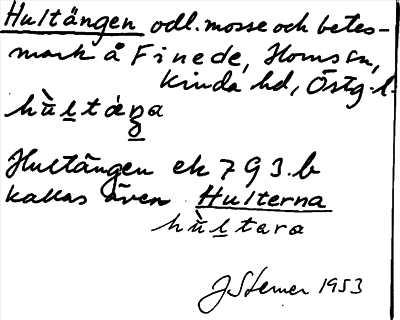 Hultängen odl. mosse och betes-
mark å Finede, Horns sn,
Kinda hd, Östg. l.
hùltáŋa
Hultängen ek 793.b
kallas även Hulterna
hùltara
J Sterner 1953